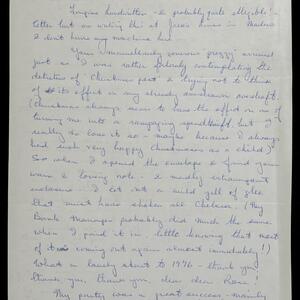 handwritten & probably quite illegible
letter but am writing this at
& don't have my machine
Your immensely generous
just as I was rather contemplating the
detritus of Christmas past & trying not to think
of its effect in my already overdraft.
(Christmas always seems to have the effect on me of
turning me into a rampaging spendthrift, but I
really do love it so - maybe because I always
had such very happy Christmases as a child)
So when I opened the envelope & found your
warm & loving note & madly extravagant
enclosure - I let out a wild yell of glee
that must have shaken all Chelsea. (My
Bank Manager probably did much the same
when I paid it in little knowing that most
of it coming out again almost immediately!)
What a lovely start to 1976 - thank you,
thank you, thank you, dear dear
My party was a great success - mainly